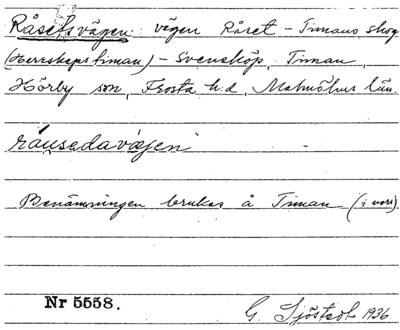 Råsetsvägen: vägen Råset - Timans skog
(Herrskapstiman) - Svensköp, Timan,
Hörby sn, Frosta h.d, Malmöhus län.
råusedavæjen
Benämningen brukas å Timan (i vers)
Nr 5558.
G. Sjöstedt 1936